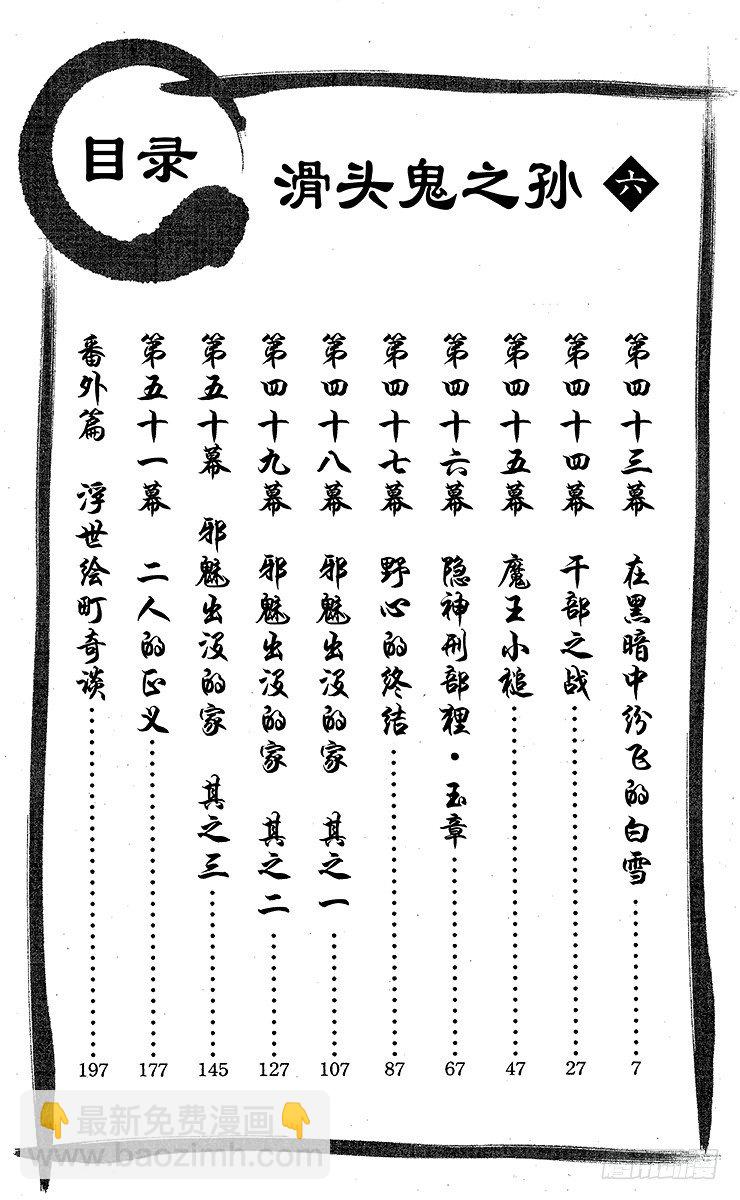 目录
滑头鬼之孙 六
第四十三幕 在黑暗中纷飞的白雪……7
第四十四幕 干部之战……27
第四十五幕 魔王小槌……47
第四十六幕 隐神刑部狸·玉章……67
第四十七幕 野心的终结……87
第四十八幕 邪魅出没的家 其之一……107
第四十九幕 邪魅出没的家 其之二……127
第五十幕 邪魅出没的家 其之三……145
第五十一幕 二人的正义……177
番外篇 浮世绘町奇谈……197
👇最新免费漫画👇
www.baozimh.com